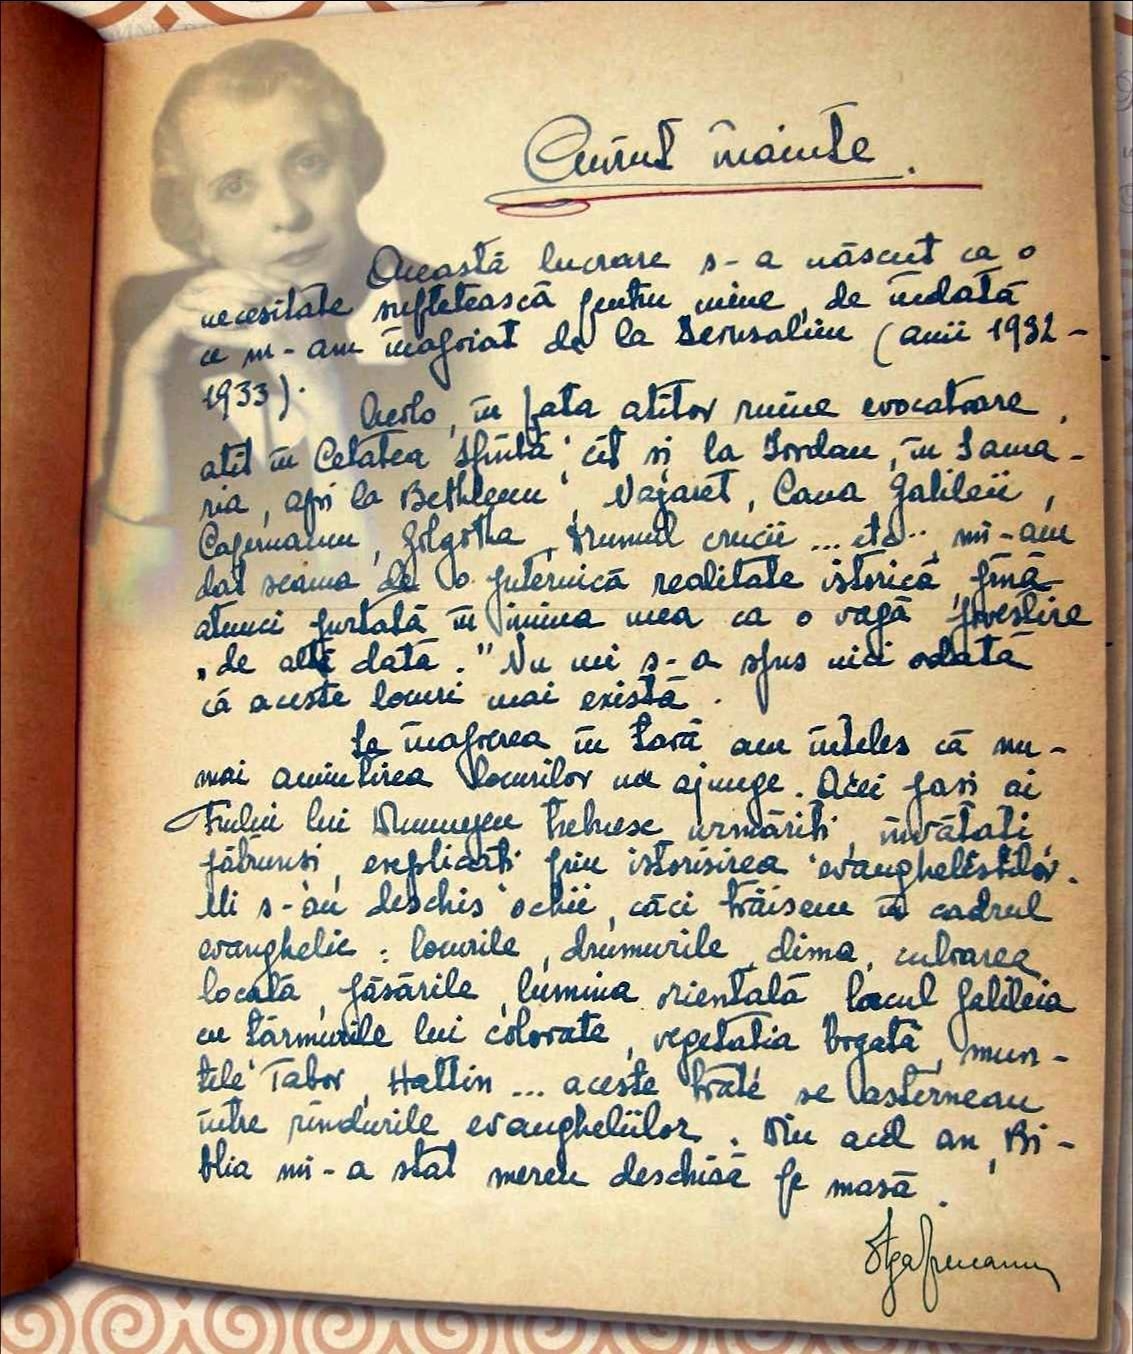 Cuvînt înainte.
Această lucrare s-a născut ca o
necesitate sufletească pentru mine, de îndată
ce m-am înapoiat de la Ierusalim (anii 1932-
1933).
Acolo, în fața atîtor ruine evocatoare,
atît în Cetatea Sfîntă, cît și la Iordan, în Sama-
ria, apoi la Bethleem, Nazaret, Cana Galileii,
Capernaum, Golgotha, drumul crucii ... etc.., mi-am
dat seama de o puternică realitate istorică, pînă
atunci purtată în inima mea ca o vagă povestire
„de altă dată." Nu mi s-a spus nici odată
că aceste locuri mai există.
La înapoerea în țară am înțeles că nu-
mai amintirea locurilor nu ajunge. Acei pași ai
Fiului lui Dumnezeu trebuesc urmăriți, învățați,
pătrunși, explicați prin istorisirea evangheliștilor.
Mi s-au deschis ochii, căci trăisem în cadrul
evanghelic: locurile, drumurile, clima, culoarea
locală, păsările, lumina orientală, lacul Galileia
cu țărmurile lui colorate, vegetația bogată, mun-
tele Tabor, Hattin ... aceste toate se așterneau
între rîndurile evangheliilor. Din acel an, Bi-
blia mi-a stat mereu deschisă pe masă.